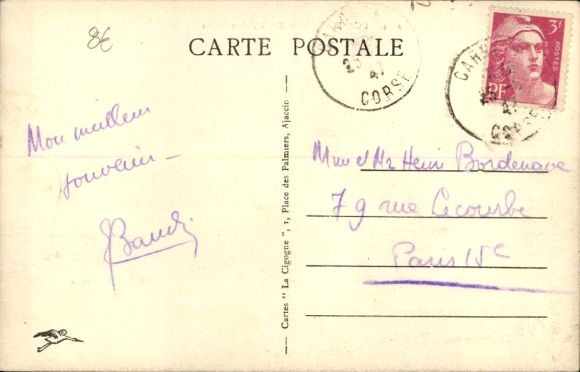 8€
CARTE POSTALE
CARG
25
47
CORSE
3F
POSTES
RF
CARG
25
47
CORSE
Mon meilleur
souvenir -
Cartes " La Cigogne ", 1, Place des Palmiers, Ajaccio
Mme et Mr Henri Bordenave
79 rue Lecourbe
Paris 15e